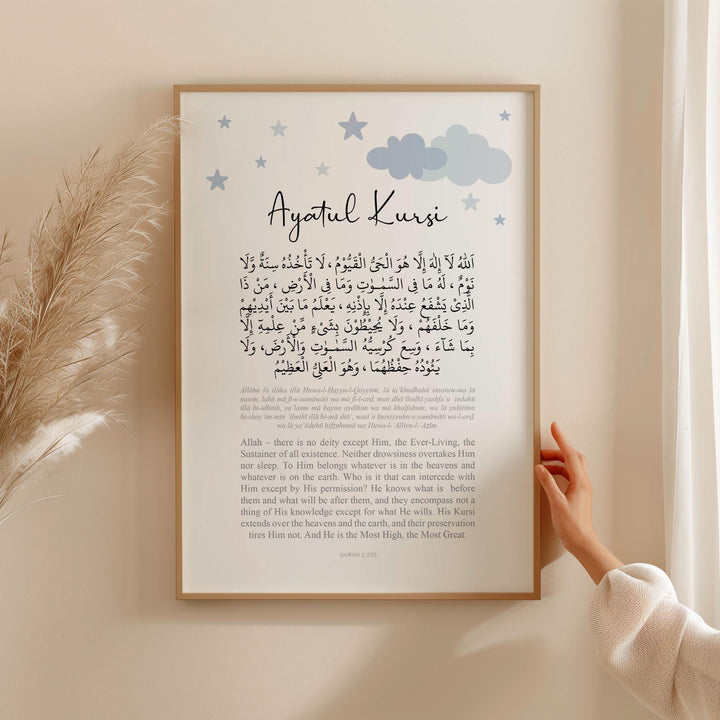 Ayatul Kursi
اَللهُ لَآ إِلٰهَ إِلَّا هُوَ الْحَيُّ الْقَيُّوْمُ ، لَا تَأْخُذُهُ سِنَةٌ وَّلَا
نَوْمٌ ، لَهُ مَا فِي السَّمٰوٰتِ وَمَا فِي الْأَرْضِ ، مَنْ ذَا
الَّذِيْ يَشْفَعُ عِنْدَهُ إِلَّا بِإِذْنِهِ ، يَعْلَمُ مَا بَيْنَ أَيْدِيْهِمْ
وَمَا خَلْفَهُمْ ، وَلَا يُحِيْطُوْنَ بِشَيْءٍ مِّنْ عِلْمِهِ إِلَّا
بِمَا شَآءَ ، وَسِعَ كُرْسِيُّهُ السَّمٰوٰتِ وَالْأَرْضَ، وَلَا
يَئُوْدُهُ حِفْظُهُمَا ، وَهُوَ الْعَلِيُّ الْعَظِيْمُ
Allāhu lā ilāha illā Huwa-l-Hayyu-l-Qayyūm, lā ta'khudhuhū sinatuw-wa lā
nawm, lahū mā fi-s-samāwāti wa mā fi-l-arḍ, man dhā'lladhī yashfa'u 'indahū
illā bi-idhnih, ya'lamu mā bayna aydīhim wa mā khalfahum, wa lā
bi-shay'im-min 'ilmihī illā bi-mā shā', wasi'a kursiyyuhu-s-samāwāti wa-l-arḍ,
wa lā ya'ūduhū ḥifẓuhumā wa Huwa-l-'Aliyyu-l-'Aẓīm.
Allah – there is no deity except Him, the Ever-Living, the
Sustainer of all existence. Neither drowsiness overtakes Him
nor sleep. To Him belongs whatever is in the heavens and
whatever is on the earth. Who is it that can intercede with
Him except by His permission? He knows what is before
them and what will be after them, and they encompass not a
thing of His knowledge except for what He wills. His Kursi
extends over the heavens and the earth, and their preservation
tires Him not. And He is the Most High, the Most Great.
QURAN 2:255